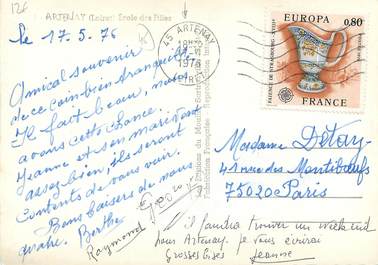 12€
ARTENAY (Loiret) École des Filles
Le 17.5.76
Amical souvenir
de ce coin bien tranquille
Il fait beau, nous
avons cette chance.
Jeanne et son mari vont
assez bien, ils seront
contents de vous voir.
Bons baisers de nous
quatre. Berthe
Raymond
45 ARTENAY
1976
LOIRET
EUROPA 0,80
FAIENCE DE STRASBOURG
FRANCE
Madame
41 rue des Montibœufs
75020 Paris
il faudra trouver un weekend
pour Artenay. je vous écrirai
Grosses bises Jeanne